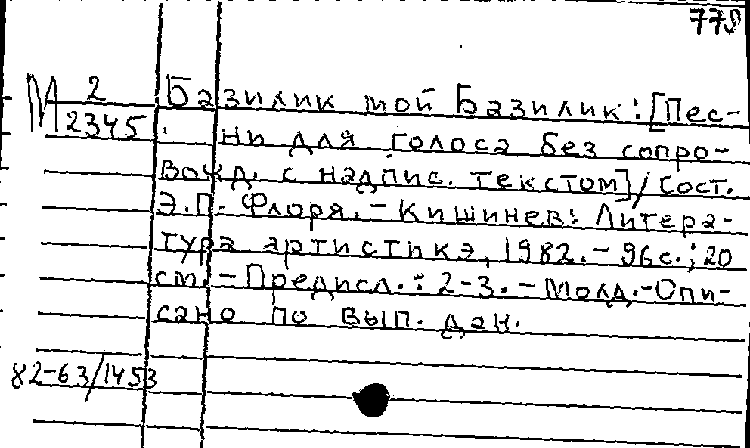 778
М 2/2345
Базилик мой Базилик: [Пес-
ни для голоса без сопро-
вожд. с надпис. текстом]/Сост.
Э.П. Флоря. - Кишинев: Литера-
тура артистикэ, 1982. - 96с.; 20
см. - Предисл.: 2-3. - Молд. - Опи-
сано по вып. дан.
82-63/1453